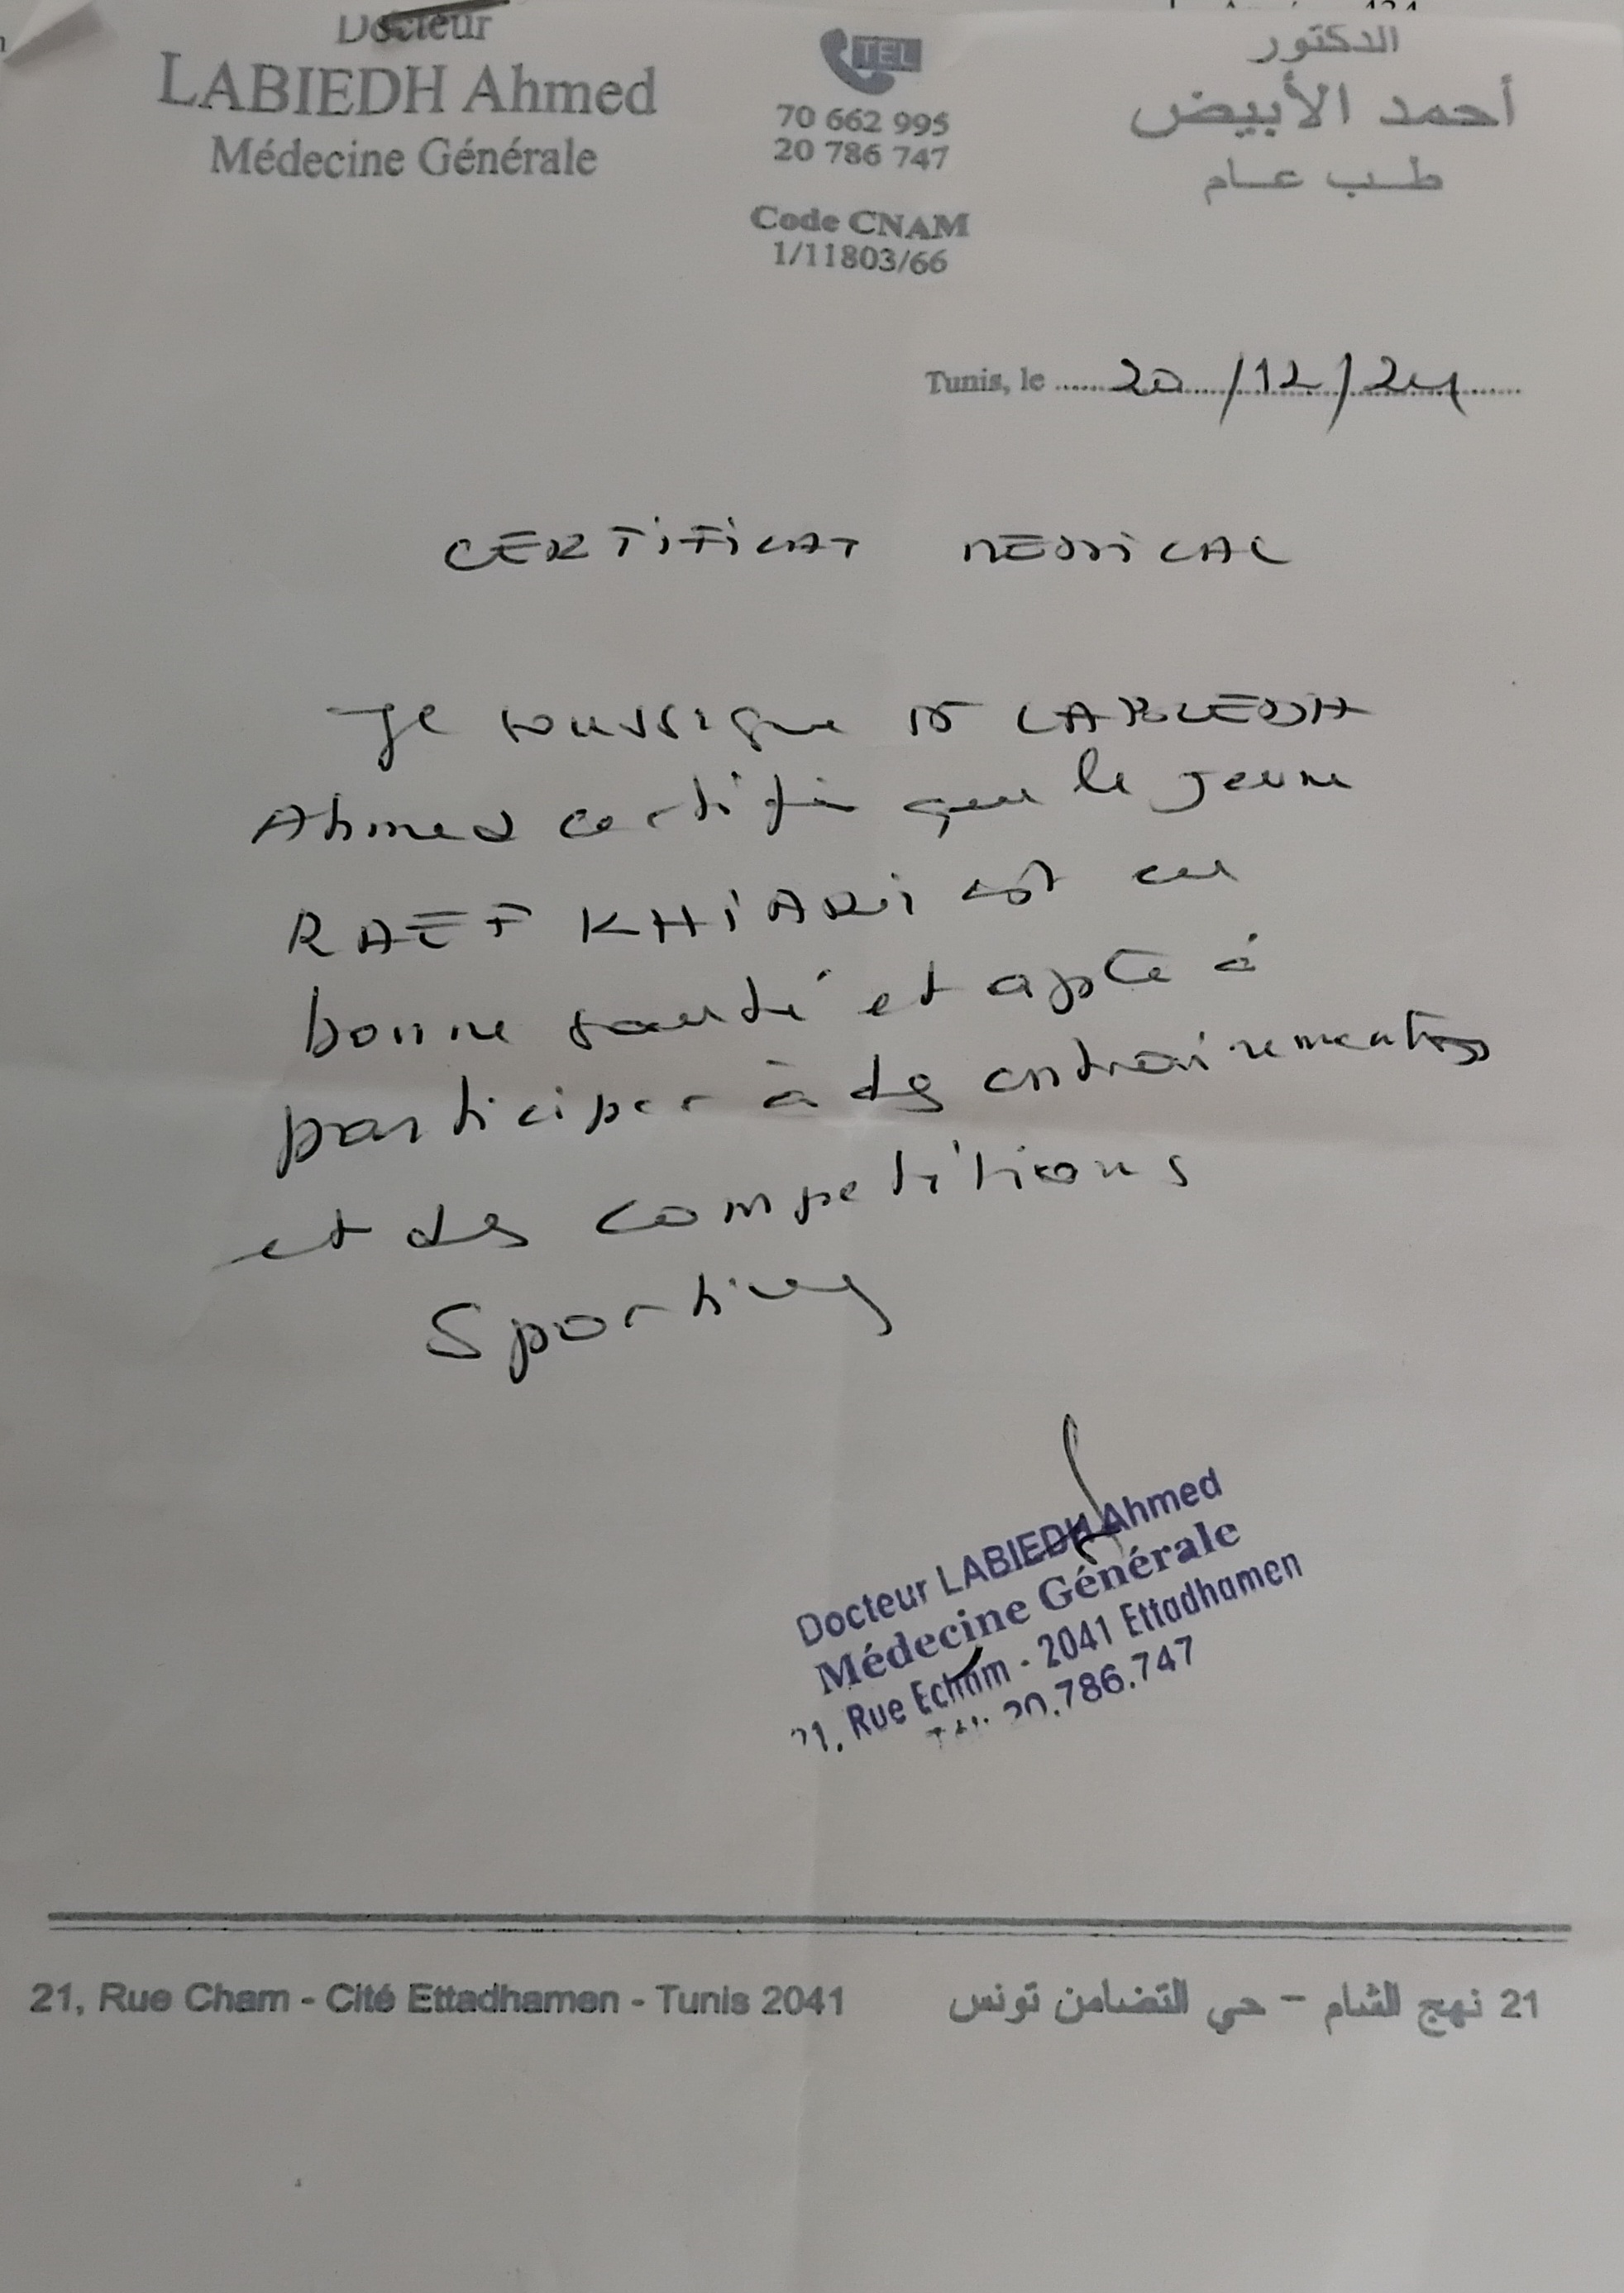 Docteur
LABIEDH Ahmed
Médecine Générale
TEL
70 662 995
20 786 747
Code CNAM
1/11803/66
الدكتور
أحمد الأبيض
طب عام
Tunis, le 20/12/24
CERTIFICAT MEDICAL
Je soussigne Dr LABIEDH
Ahmed certifie que le jeune
RAEF KHIARI est en
bonne santé et apte à
participer à des entrainements
et des competitions
Sportives
Docteur LABIEDH Ahmed
Médecine Générale
21, Rue Echam - 2041 Ettadhamen
Tél: 20.786.747
21, Rue Cham - Cité Ettadhamen - Tunis 2041
21 نهج الشام – حي التضامن تونس